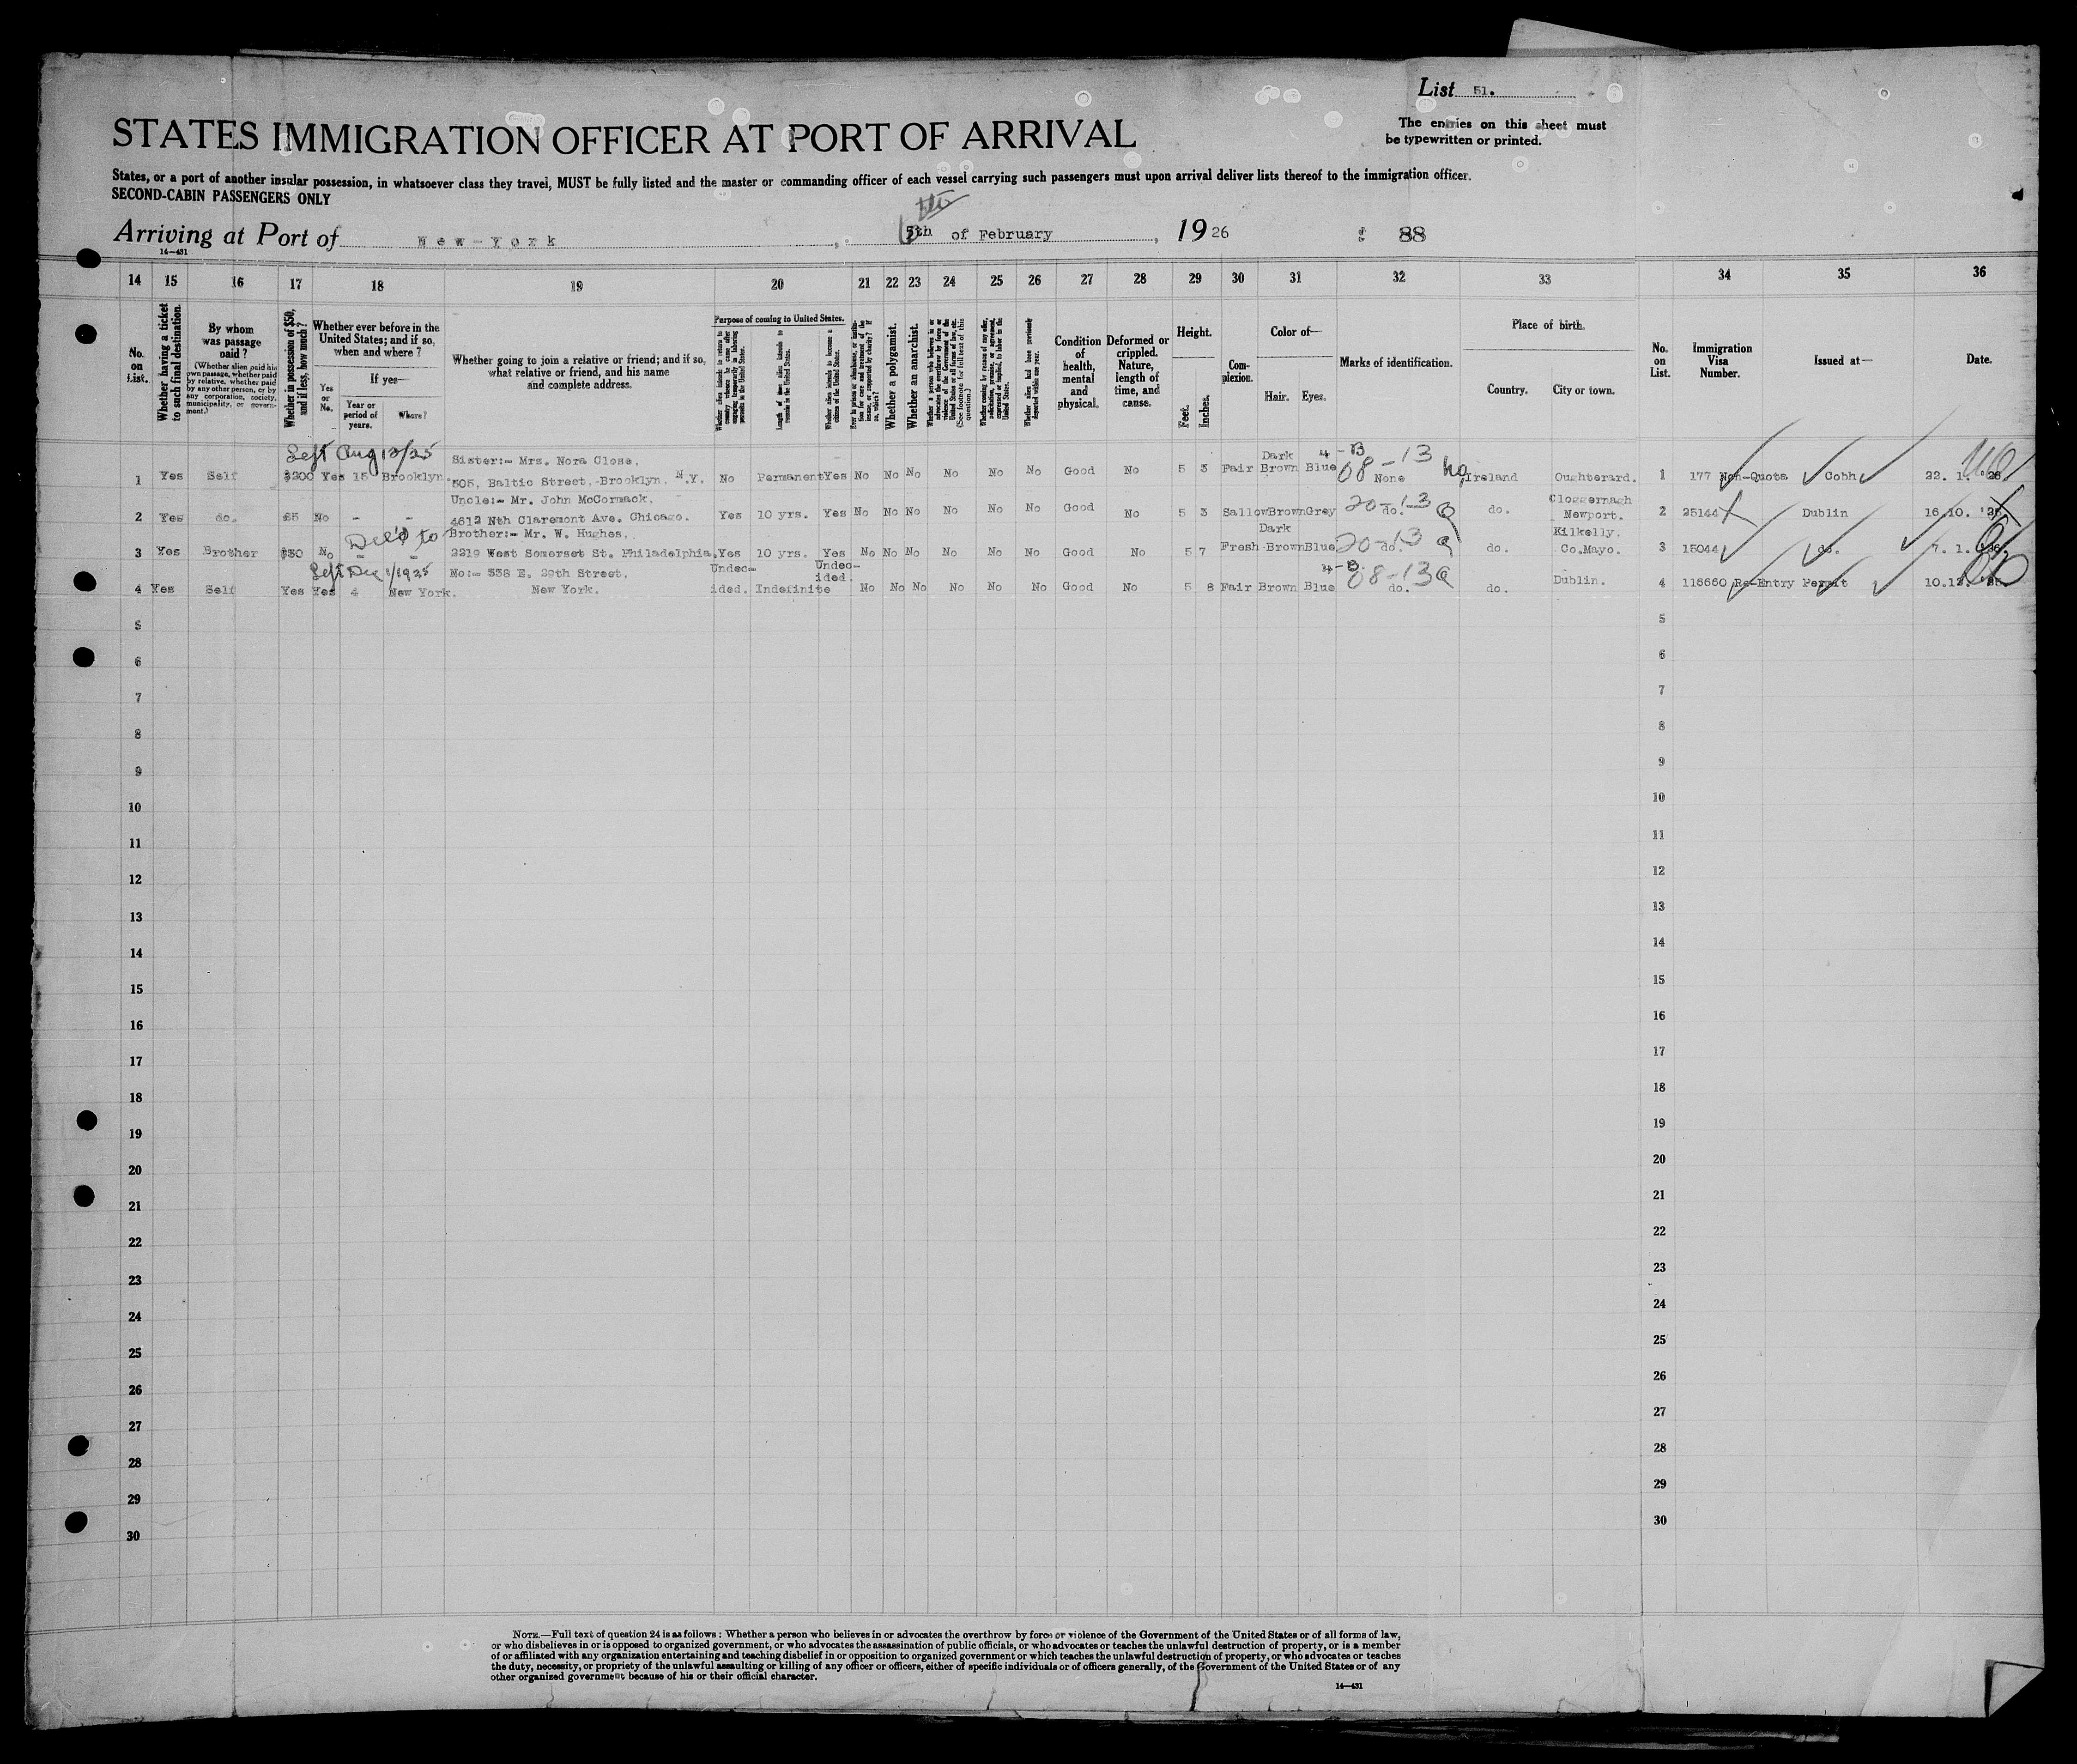 List 51.
The entries on this sheet must
be typewritten or printed.
STATES IMMIGRATION OFFICER AT PORT OF ARRIVAL
States, or a port of another insular possession, in whatsoever class they travel, MUST be fully listed and the master or commanding officer of each vessel carrying such passengers must upon arrival deliver lists thereof to the immigration officer.
SECOND-CABIN PASSENGERS ONLY
Arriving at Port of New-York, 5th of February, 1926 88
14-431
14 15 16 17 18 19 20 21 22 23 24 25 26 27 28 29 30 31 32 33 34 35 36
No. on List.
Whether having a ticket to such final destination.
By whom was passage paid?
(Whether alien paid his own passage, whether paid by relative, whether paid by any other person, or by any corporation, society, municipality, or government.)
Whether in possession of $50, and if less, how much?
Whether ever before in the United States; and if so, when and where?
Yes or No.
If yes—
Year or period of years.
Where?
Whether going to join a relative or friend; and if so, what relative or friend, and his name and complete address.
Purpose of coming to United States.
Length of time alien intends to remain in the United States.
Whether alien intends to become a citizen of the United States.
Whether a polygamist.
Whether an anarchist.
Condition of health, mental and physical.
Deformed or crippled. Nature, length of time, and cause.
Height.
Feet.
Inches.
Complexion.
Color of—
Hair.
Eyes.
Marks of identification.
Place of birth.
Country.
City or town.
No. on List.
Immigration Visa Number.
Issued at—
Date.
Left Aug 13/25
Sister:- Mrs. Nora Close,
Dark 4 - B 08-13
1 Yes Self $200 Yes 15 Brooklyn. 505, Baltic Street, Brooklyn, N.Y. No Permanent Yes No No No No No No Good No 5 3 Fair Brown Blue None Ireland Oughterard. 1 177 Non-Quota Cobh 22. 1. '26.
Uncle:- Mr. John McCormack, 20-13 Cloggernagh
2 Yes do. $5 No - - 4612 Nth Claremont Ave. Chicago. Yes 10 yrs. Yes No No No No No No Good No 5 3 Sallow Brown Grey do. do. Newport. 2 25144 Dublin 16.10. '25
Brother:- Mr. W. Hughes, Dark 20-13 Kilkelly.
3 Yes Brother $30 No - - 2219 West Somerset St. Philadelphia. Yes 10 yrs. Yes No No No No No No Good No 5 7 Fresh Brown Blue do. do. Co.Mayo. 3 15044 do. 7. 1. '26.
Left Dec 1/1925 No:- 338 E. 29th Street, Undec- Undec- 4-B 08-13
4 Yes Self Yes Yes 4 New York. New York. ided. Indefinite ided. No No No No No No Good No 5 8 Fair Brown Blue do. do. Dublin. 4 116660 Re-Entry Permit 10.12. '25.
5 5
6 6
7 7
8 8
9 9
10 10
11 11
12 12
13 13
14 14
15 15
16 16
17 17
18 18
19 19
20 20
21 21
22 22
23 23
24 24
25 25
26 26
27 27
28 28
29 29
30 30
NOTE.—Full text of question 24 is as follows: Whether a person who believes in or advocates the overthrow by force or violence of the Government of the United States or of all forms of law,
or who disbelieves in or is opposed to organized government, or who advocates the assassination of public officials, or who advocates or teaches the unlawful destruction of property, or is a member
of or affiliated with any organization entertaining and teaching disbelief in or opposition to organized government or which teaches the unlawful destruction of property, or who advocates or teaches
the duty, necessity, or propriety of the unlawful assaulting or killing of any officer or officers, either of specific individuals or of officers generally, of the Government of the United States or of any
other organized government because of his or their official character.
14-431